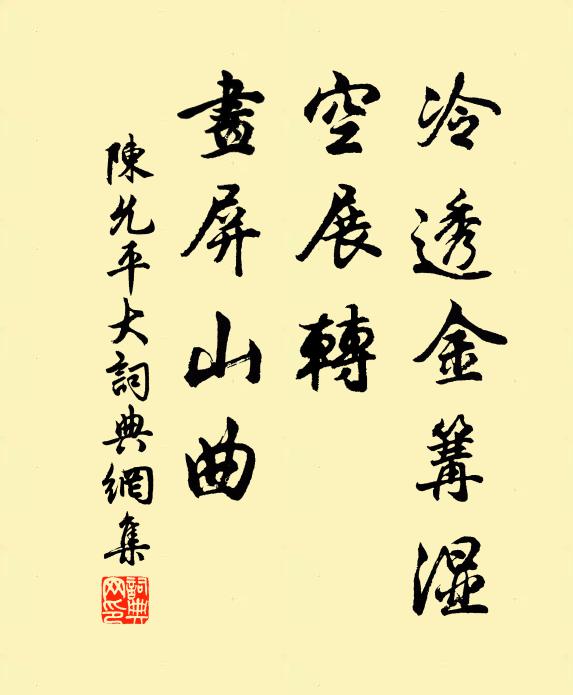 冷透金篝湿
空展轉
畫屏山曲
陳允平大詞典網集
詞典網印